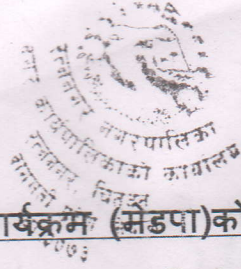 रत्ननगर नगरपालिका
नगर कार्यपालिकाको कार्यालय
रत्ननगर, चितवन
२०७३
र्यक्रम (मेडपा)को